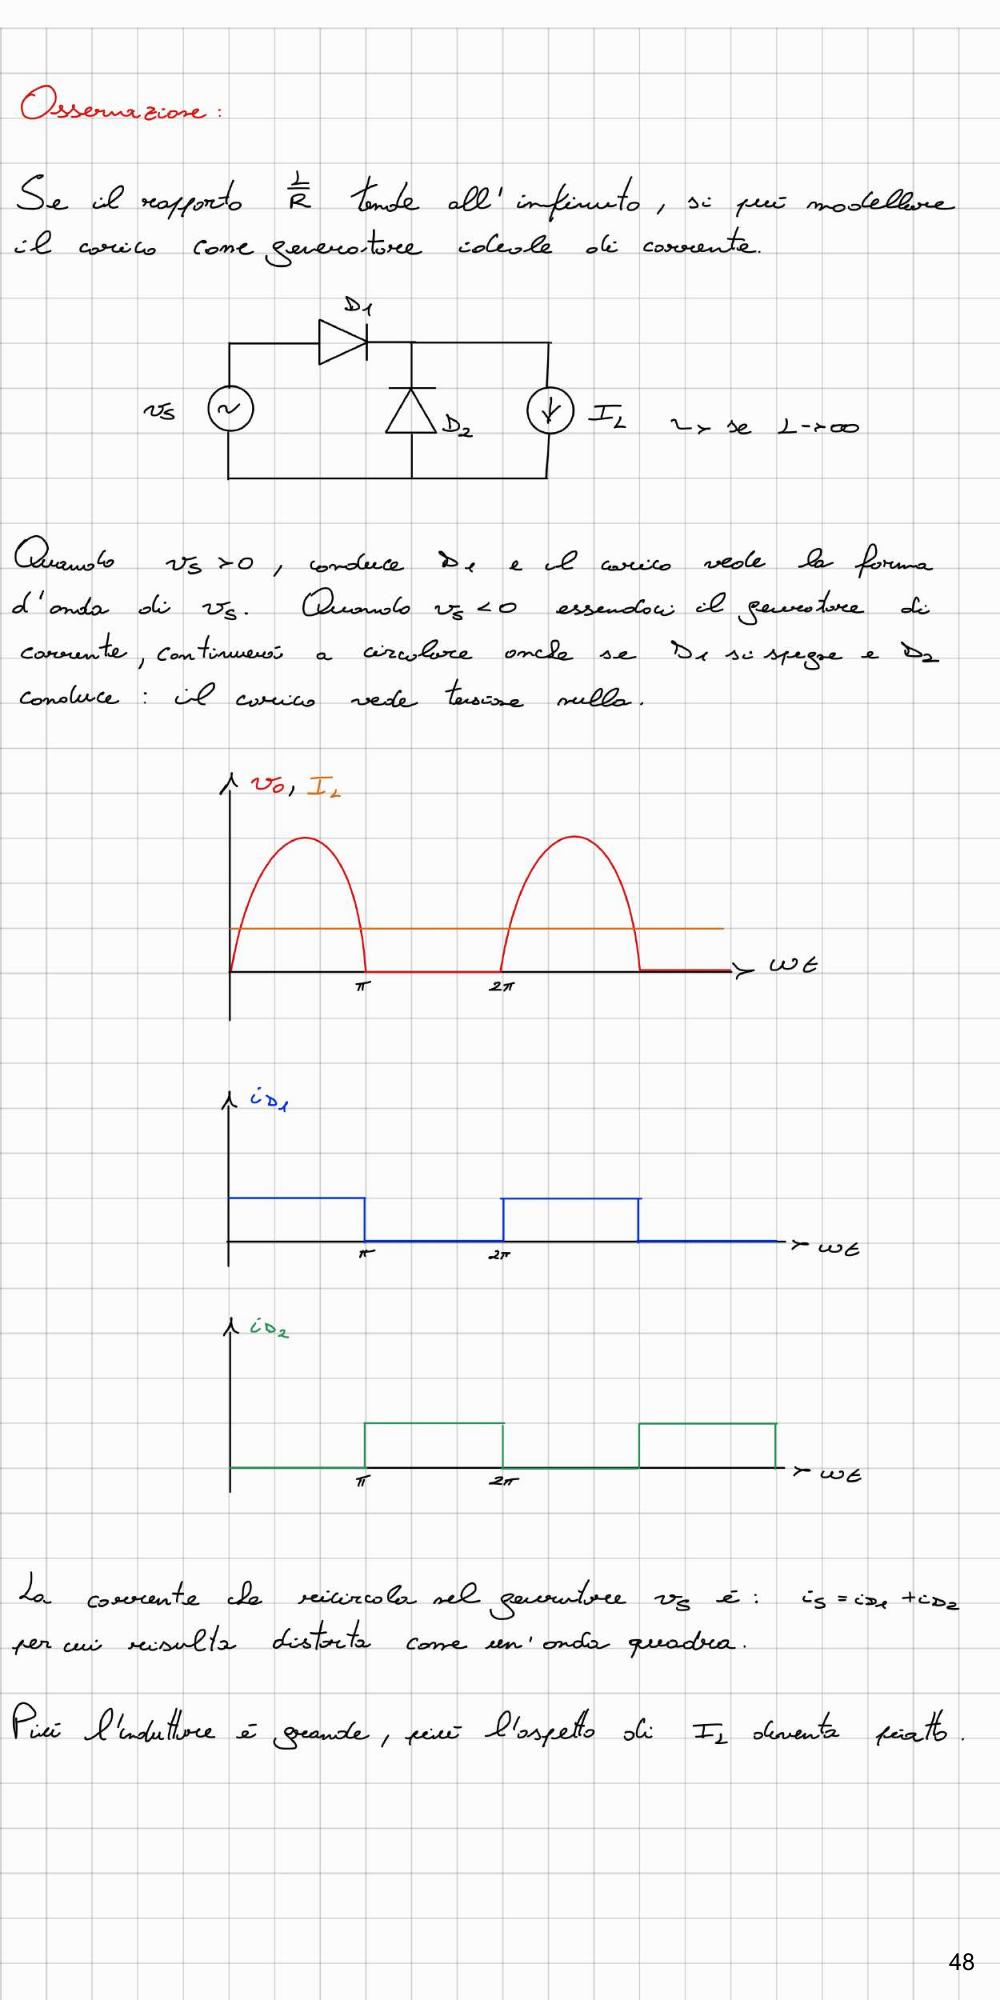 Osservazione:
Se il rapporto L/R tende all'infinito, si può modellare
il carico come generatore ideale di corrente.
D1
vs
D2
IL
~> se L->∞
Quando vs >0, conduce D1 e il carico vede la forma
d'onda di vs. Quando vs <0 essendoci il generatore di
corrente, continuerà a circolare anche se D1 si spegne e D2
conduce : il carico vede tensione nulla.
vo, IL
ωt
π 2π
iD1
π 2π ωt
iD2
π 2π ωt
La corrente che ricircola nel generatore vs è: is = iD1 + iD2
per cui risulta distorta come un'onda quadra.
Più l'induttore è grande, più l'aspetto di IL diventa piatto.
48